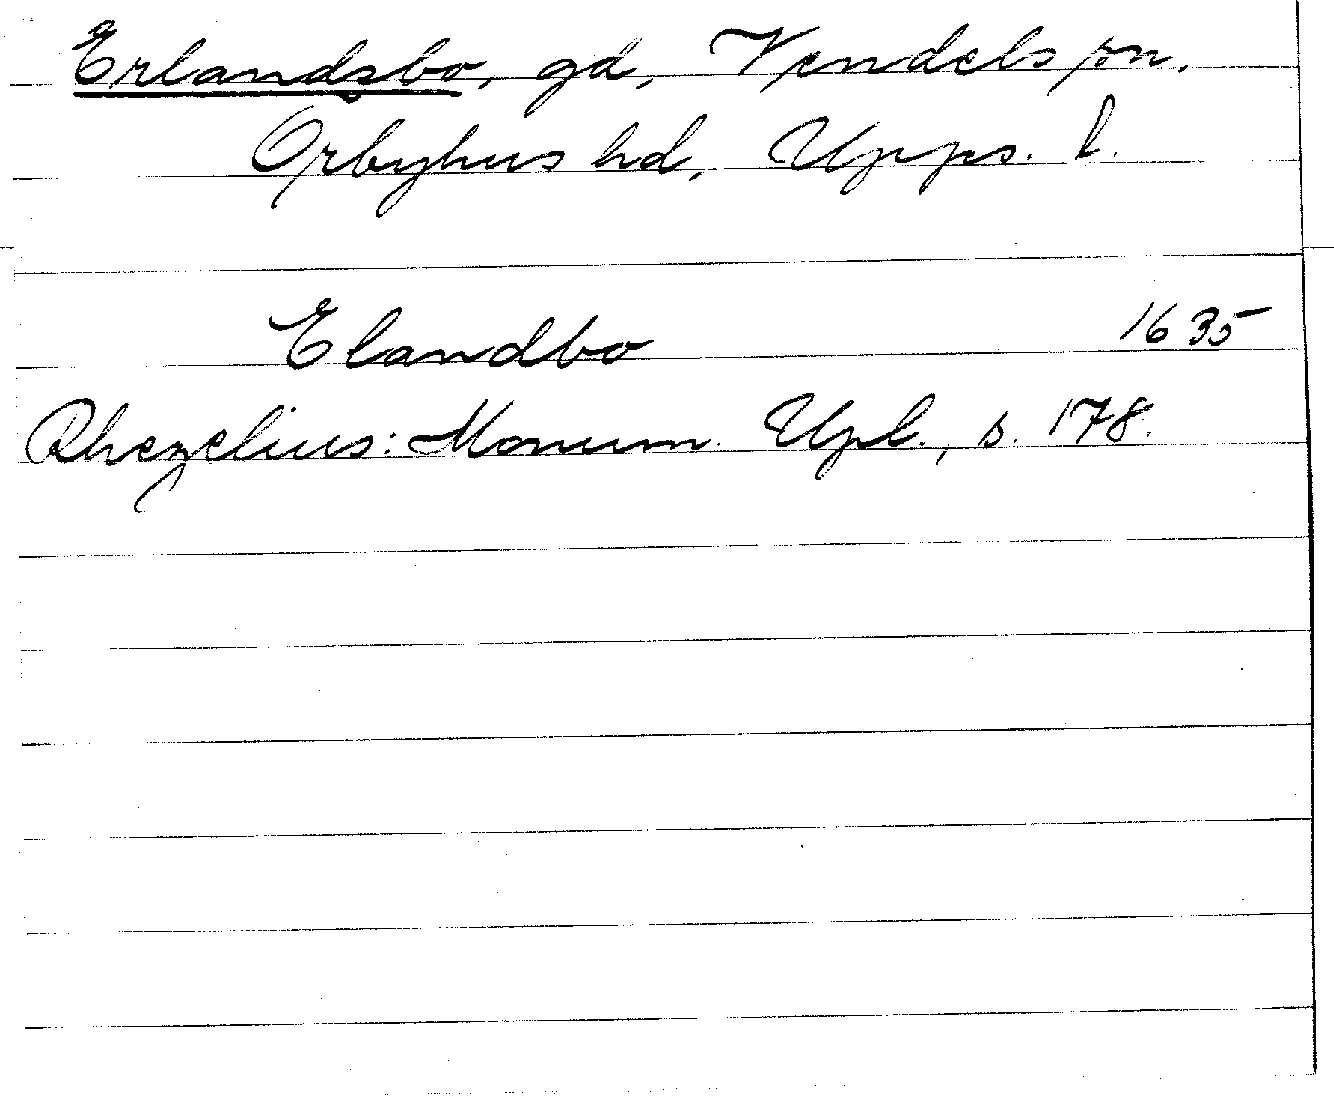 Erlandsbo, gd, Vendels sn,
Örbyhus hd, Upps. l.
Elandbo 1635
Rhezelius: Monum. Upl., s. 178.